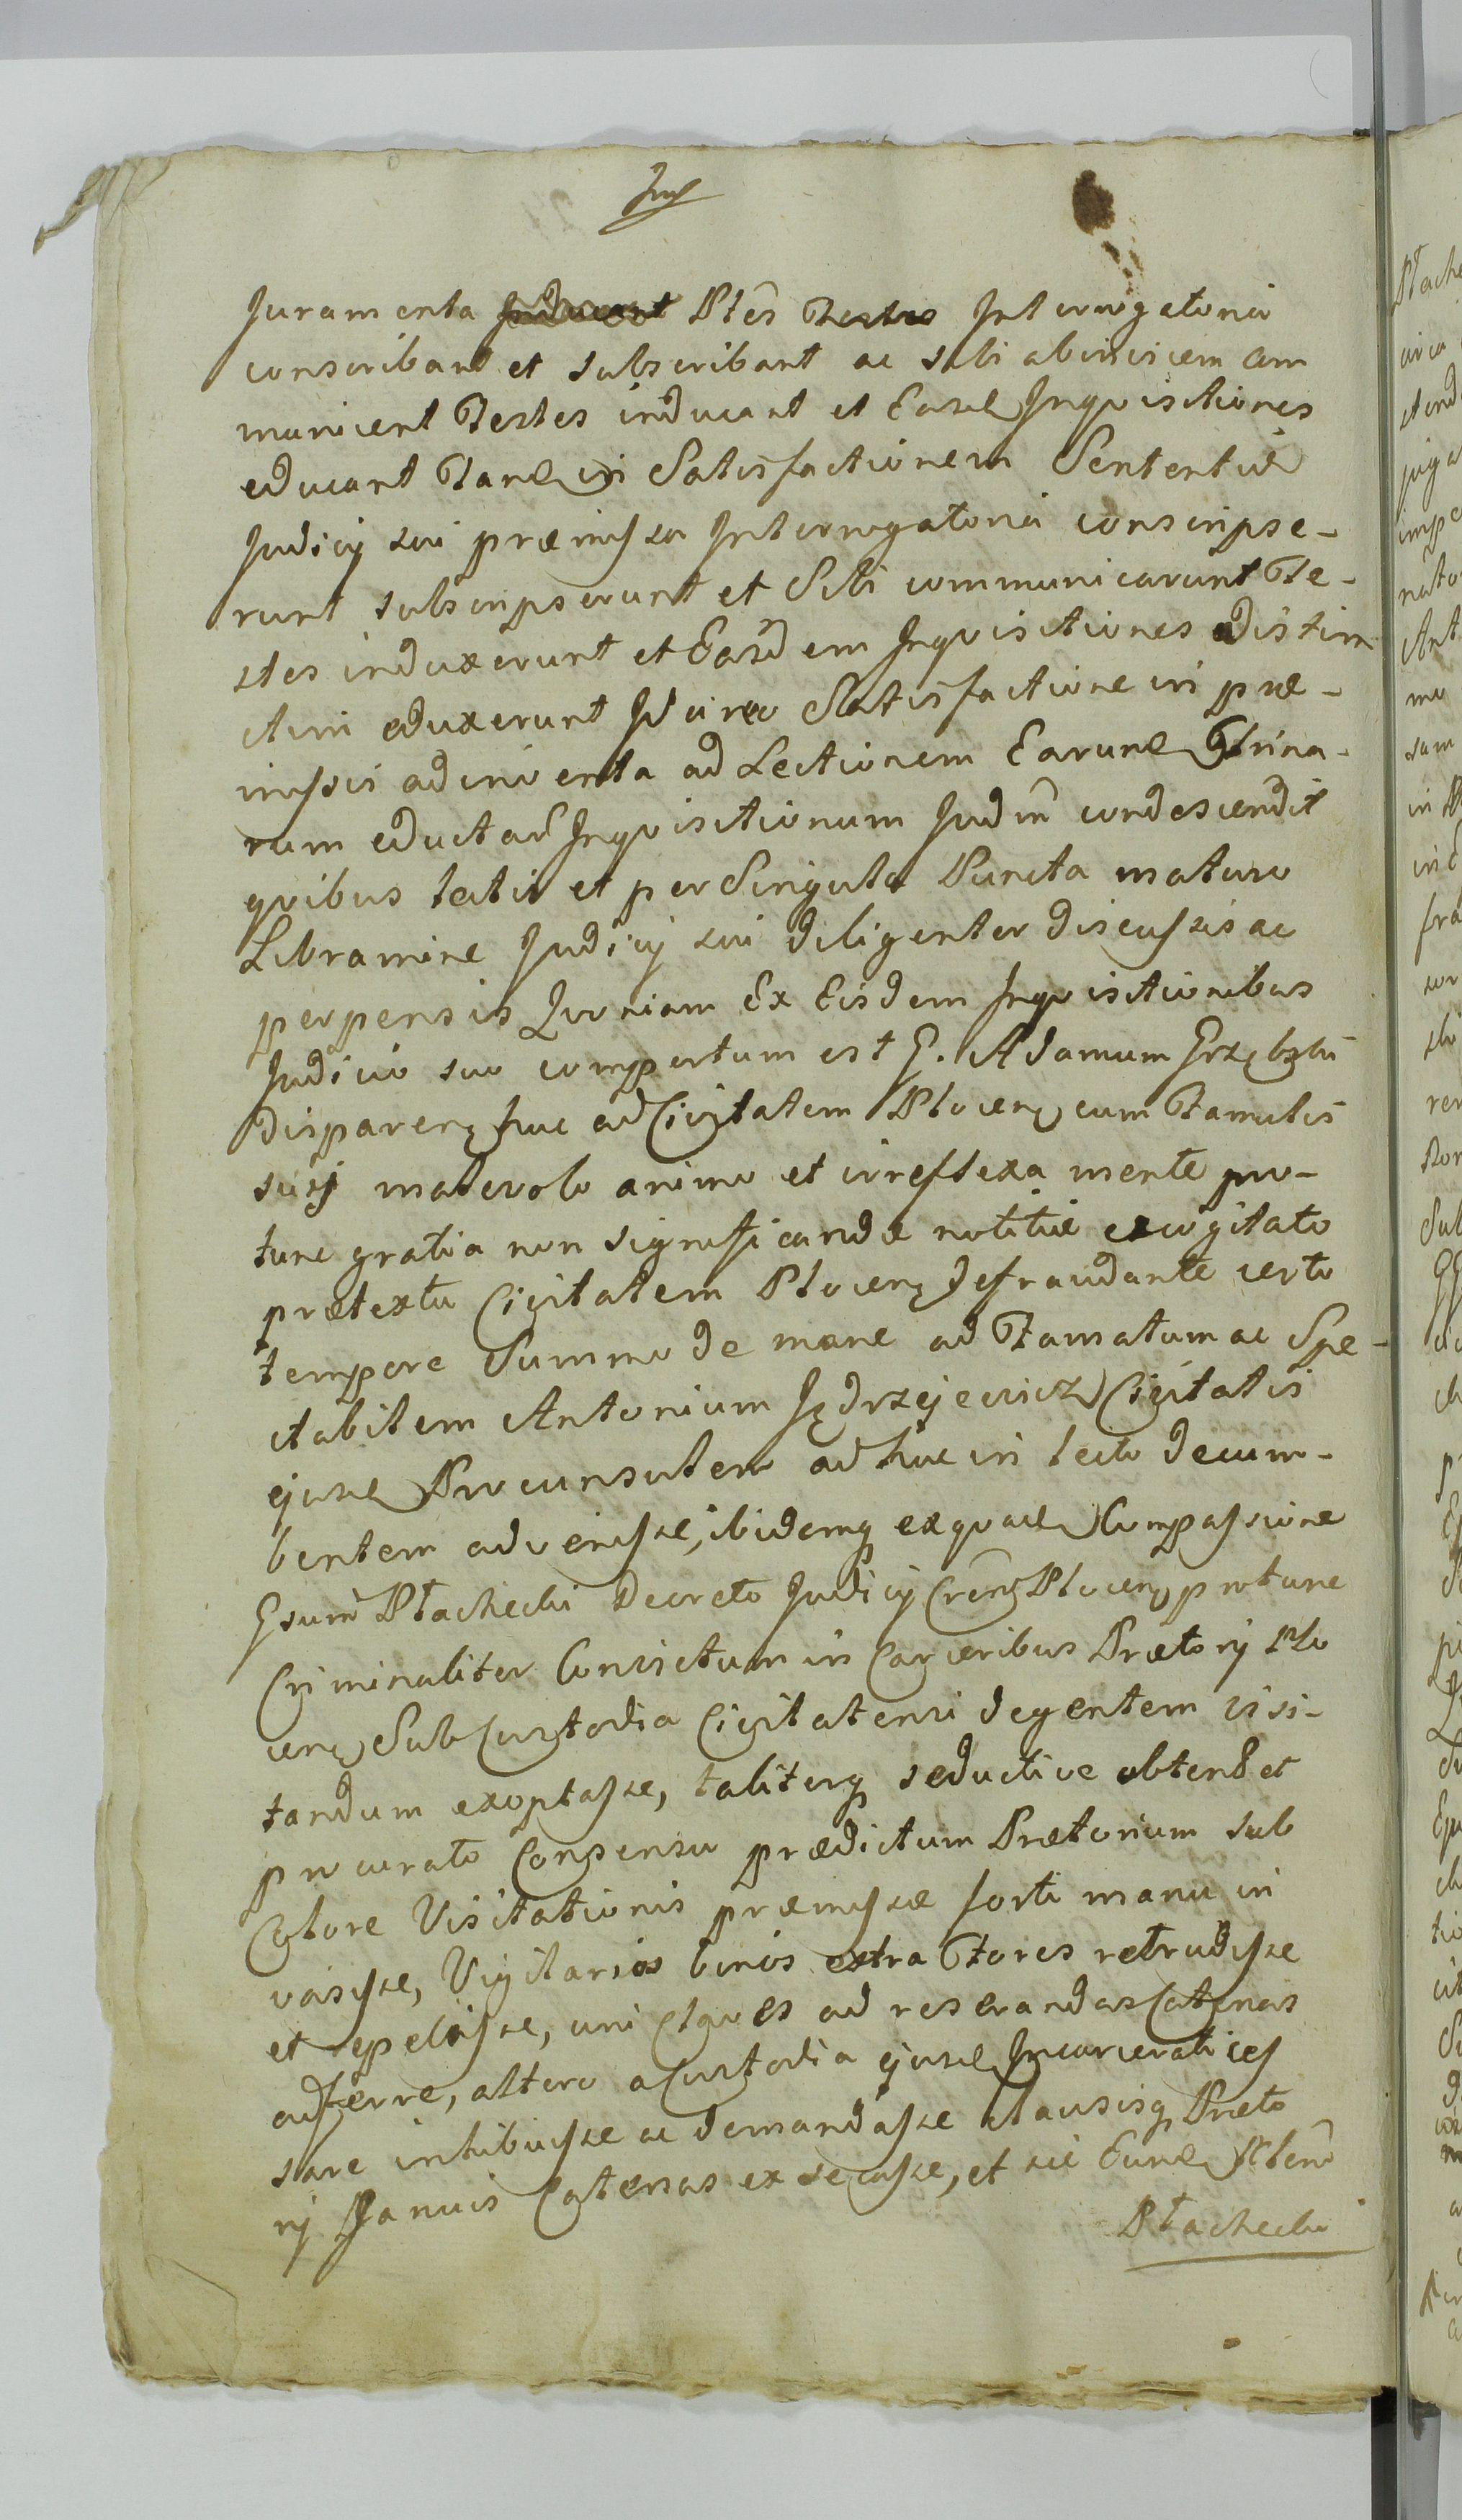 Juramenta Ptēs Testes Interrogatoria
conscribant et subscribant ac sibi abinvicem com
municent Testes inducant et Easd Inquisitiones
educant Tand in Satisfactionem Sententiæ
Judicij sui præmissa Interrogatoria conscripse-
runt subscripserunt et Sibi communicarunt Te-
stes induxerunt et Easdem Inquisitiones distin
ctim eduxerunt Id circo Satisfactione in præ-
missis adinventa ad Lectionem Earund
rum eductar Inquisitionum Judm condescendit
quibus lectis et per Singula Puncta maturo
Libramine Judicij sui diligenter discussis ac
perpensis Quoniam Ex Eisdem Inquisitionibus
Judicio suo compertum est G. Adamum Grzębski
disparenꝫ huc ad Civitatem Plocenꝫ cum Famulis
suis malevolo animo et irreflexa mente pro-
tunc gratia non significandæ notitiæ excogitato
prætextu Civitatem Plocenꝫ defraudante certo
tempore Summo de mane ad Famatum ac Spe-
ctabilem Antonium Jędrzejewicz Civitatis
ejusd Proconsulem adhuc in lecto decum-
bentem advenisse, ibidemq exquad Compassione
Gsum Ptachecki Decreto Judicij Crēnꝫ Plocenꝫ protunc
Criminaliter Convictum in Carceribus Prætorij Plo
cenꝫ Sub Custodia Civitatensi degentem visi-
tandum exoptasse, taliterq seductive obtento et
procurato Consensu prædictum Prætorium sub
Colore Visitationis præmissæ forti manu in
vasisse, Vigilarios binos extra Fores retrudisse
et expelisse, uni Claves ad reserandas Catenas
adferre, altero a Custodia ejusd Incarcerati ces
sare inhibuisse ac demandasse clausisq Præto
rij Januis Catenas exsecasse, et sic Eund Ptem
Ptachecki